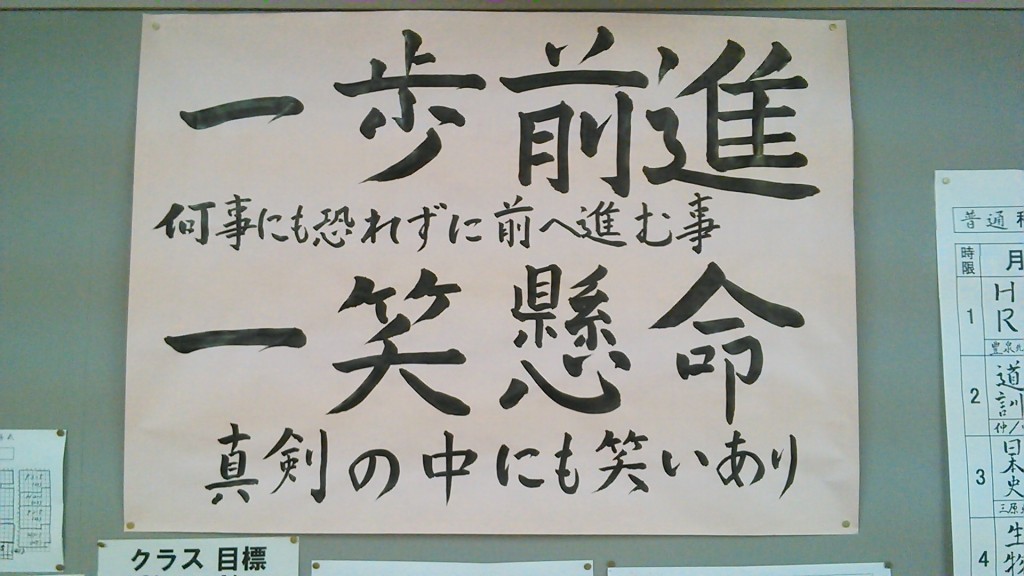 一歩前進
何事にも恐れずに前へ進む事
一笑懸命
真剣の中にも笑いあり
クラス 目標
普通
時限 月
1 HR
2 道訓
3 日本史
4 生物